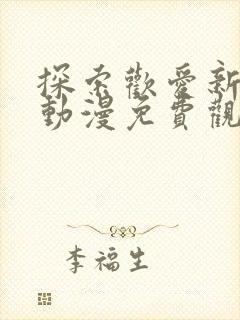 探索歡愛新
動漫免費觀
李福生